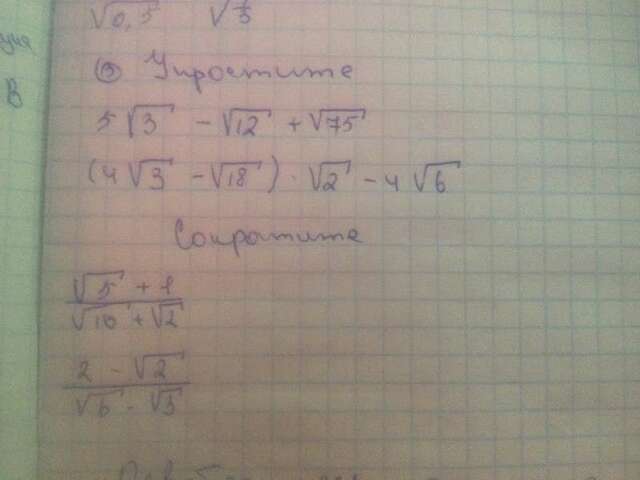 √0,5 √1/3
③ Упростите
5√3 - √12 + √75
В
(4√3 - √18) · √2 - 4√6
Сократите
√5 + 1
√10 + √2
2 - √2
√6 - √3